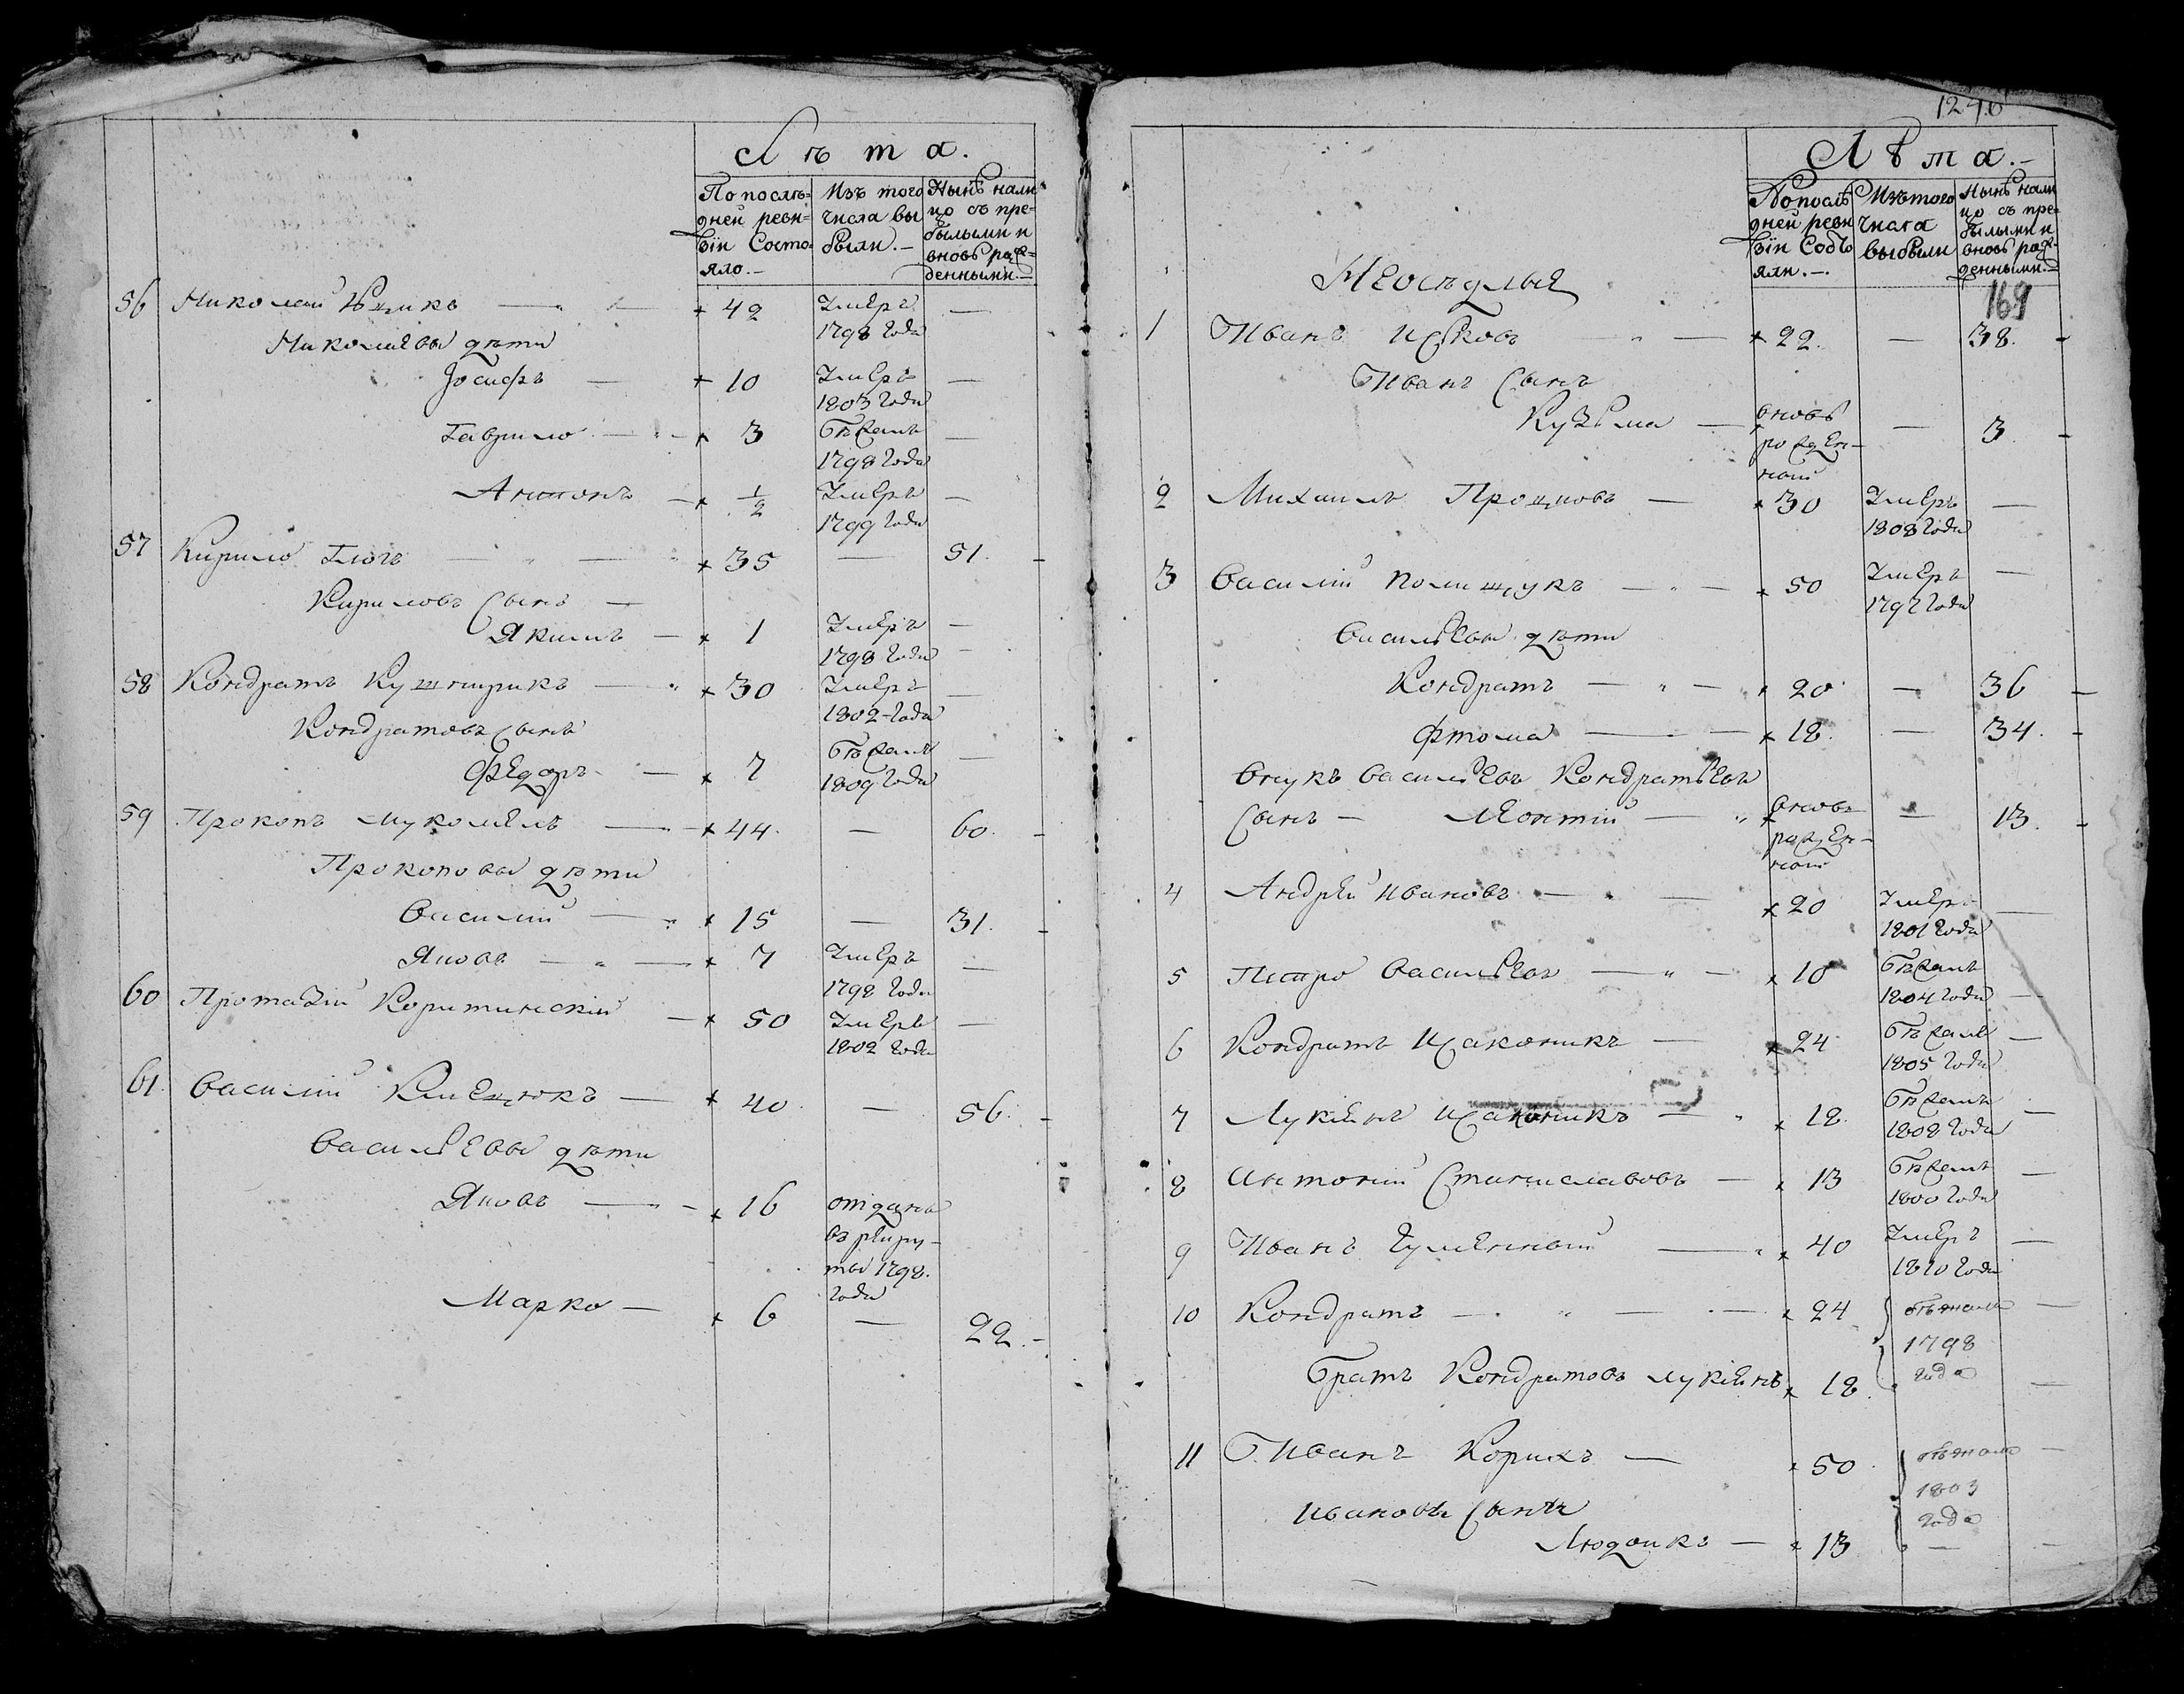 Лѣта.
По послѣ=
дней реви=
зіи Состо=
яло.—
Изъ того
числа вы
были.—
Нынѣ нали
цо съ пре=
былыми и
вновь рож=
денными.—
56 Николай — 42 Умеръ —
1798 года
Николаевы дѣти
Іосифъ — 10 Умеръ —
1803 года
Гаврило — 3 Бѣжалъ —
1798 года
Антонъ — 1/2 Умеръ —
1799 года
57 Кирило Глогъ — 35 — 51.
Кириловъ Сынъ —
Якимъ — 1 Умеръ —
1798 года
58 Кондратъ Кушнирикъ — 30 Умеръ —
1802 года
Кондратовъ Сынъ
Федоръ — 7 Бѣжалъ —
1809 года
59 Прокопъ Мукомелъ — 44. — 60.
Прокоповы дѣти
Василій — 15 — 31.
Яковъ — 7 Умеръ —
1798 года
60 Протазій Коритинскій — 50 Умеръ —
1802 года
61. Василій Клещюкъ — 40 — 56.
Васильевы дѣти
Яковъ — 16 отданъ
въ рекру-
ты 1798.
года
Марко — 6 — 22.
1246
Лѣта.—
По послѣ
дней реви
зіи Состо
яли.—
Изъ того
числа
выбыли
Нынѣ нали
цо съ пре=
былыми и
вновь рож=
денными.—
169
Неосѣдлые
1 Иванъ — 22. — 38.
Иванъ Сынъ
Кузьма — вновь — 3
рожден-
ный
2 Михаилъ Процковъ — 30 Умеръ —
1808 года
3 Василій Полищукъ — 50 Умеръ —
1797 года
Васильевы дѣти
Кондратъ — 20 — 36
Фтома — 18. — 34.
Внукъ Васильевъ Кондратьевъ
Сынъ — Леонтій — вновь — 13.
рожден-
ный
4 Андрей Ивановъ — 20 Умеръ —
1801 года
5 Петро Васильевъ — 10 Бѣжалъ
1804 года —
6 Кондратъ Исаконикъ — 24 Бѣжалъ —
1805 года
7 Лукіянъ Исаконикъ — 18. Бѣжалъ —
1808 года
8 Антоній Станиславовъ — 13 Бѣжалъ —
1800 года
9 Иванъ Гуменный — 40 Умеръ —
1810 года
10 Кондратъ — 24 бѣжали —
1798
года
Братъ Кондратовъ Лукіянъ 18. —
11 Иванъ Корихъ — 50 бѣжали —
1803
года
Ивановъ Сынъ
Людвикъ — 13 —